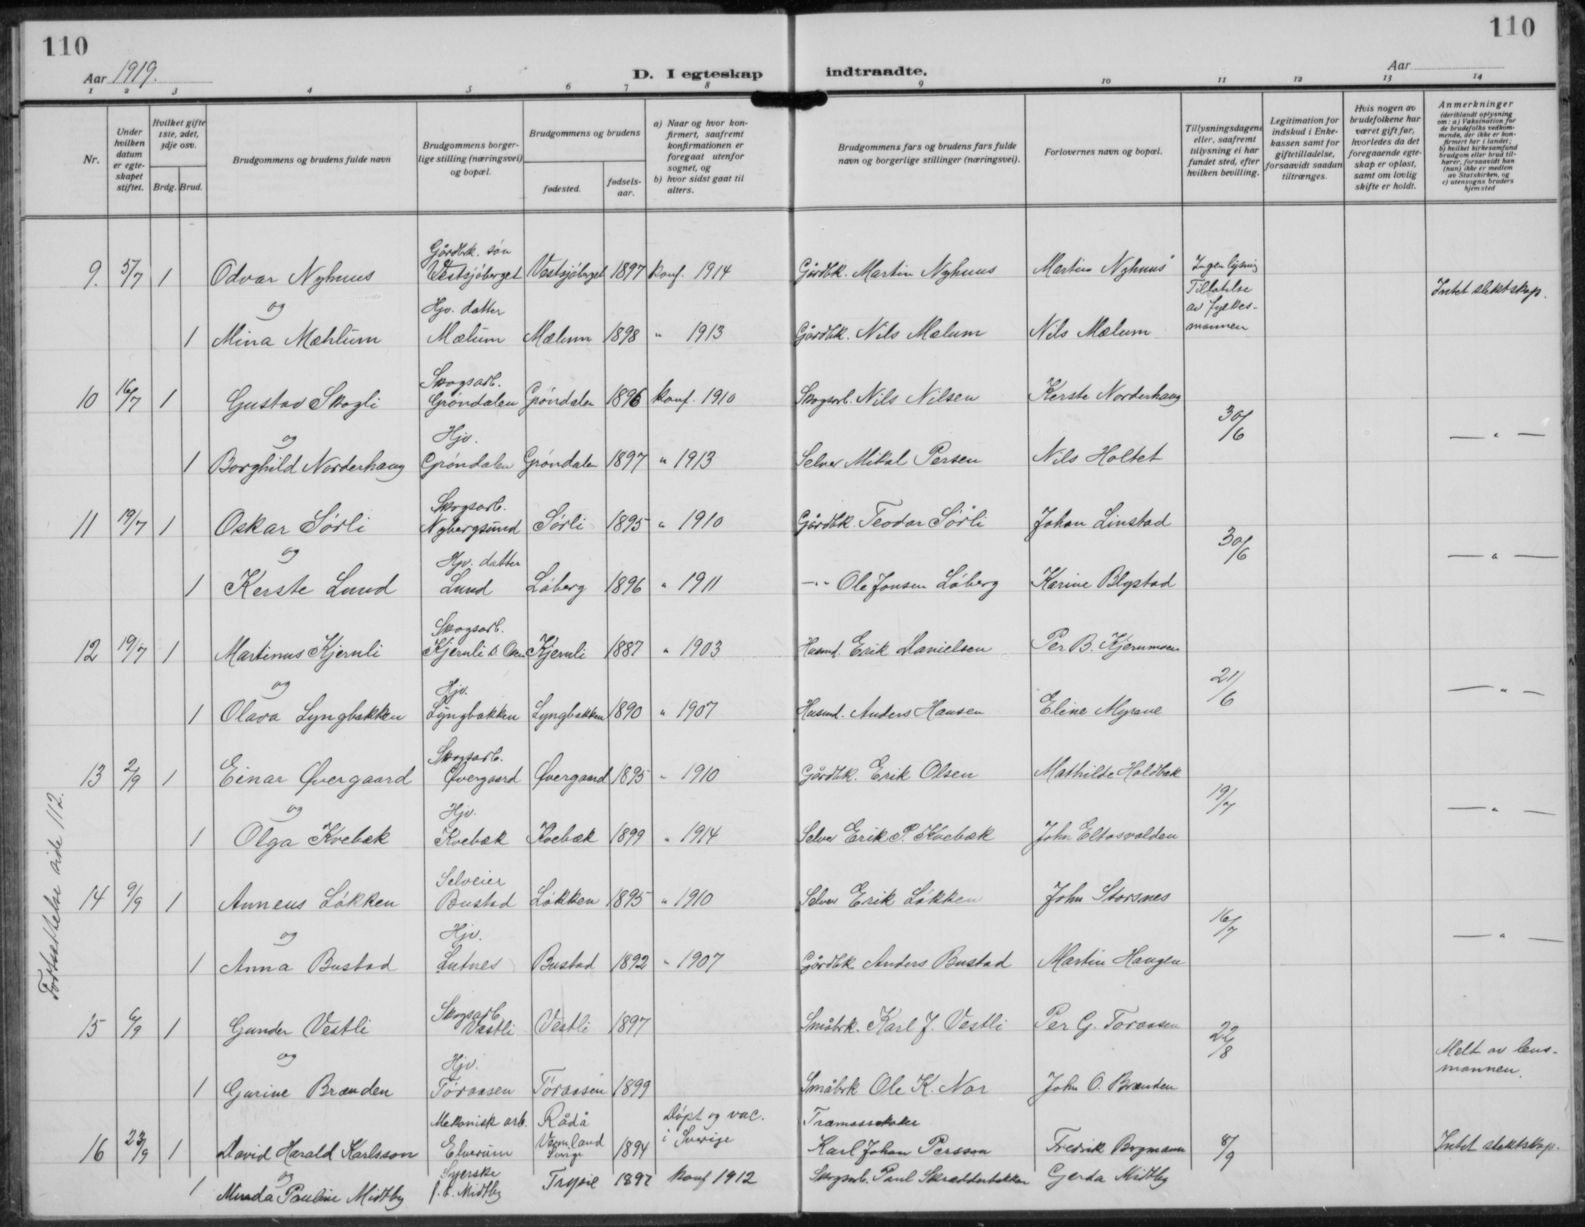 110
110
Aar 1919.
D. I egteskap indtraadte.
Aar
1 2 3 4 5 6 7 8 9 10 11 12 13 14
Nr.
Under hvilken datum er egteskapet stiftet.
Hvilket gifte 1ste, 2det, 3dje osv.
Brdg. Brud.
Brudgommens og brudens fulde navn
Brudgommens borgerlige stilling (næringsvei) og bopæl.
Brudgommens og brudens
fødested.
fødselsaar.
a) Naar og hvor konfirmert, saafremt konfirmationen er foregaat utenfor sognet, og
b) hvor sidst gaat til alters.
Brudgommens fars og brudens fars fulde navn og borgerlige stillinger (næringsvei).
Forlovernes navn og bopæl.
Tillysningsdagene eller, saafremt tillysning ei har fundet sted, efter hvilken bevilling.
Legitimation for indskud i Enkekassen samt for giftetilladelse, forsaavidt saadan tiltrænges.
Hvis nogen av brudefolkene har været gift før, hvorledes da det foregaaende egteskap er opløst, samt om lovlig skifte er holdt.
Anmerkninger
(deriblandt oplysning om: a) Vaksination for de brudefolks vedkommende, der ikke er konfirmert her i landet; b) hvilket kirkesamfund brudgom eller brud tilhører, forsaavidt han (hun) ikke er medlem av Statskirken, og c) utensogns bruders hjemsted
9. 5/7 1 Odvar Nyhuus Gårdbk. søn Vestsjøberget Vestsjöberget 1897 konf. 1914 Gårdbk. Martin Nyhuus Martin Nyhuus Ingen lysning Tillatelse av fylkesmannen Intet slektskap.
og
1 Mina Mæhlum Hjv. datter Mælum Mælum 1898 " 1913 Gårdbk. Nils Mælum Nils Mælum
10 16/7 1 Gustav Skogli Skogsarb. Grøndalen Grøndalen 1896 konf. 1910 Skogsarb. Nils Nilsen Kerste Norderhaug 30/6 — " —
og
1 Borghild Norderhaug Hjv. Grøndalen Grøndalen 1897 " 1913 Selvei Mikal Persen Nils Holtet
11 19/7 1 Oskar Sørli Skogsarb. Nybergsund Sørli 1895 " 1910 Gårdbk. Teodor Sørli Johan Linstad 30/6 — " —
og
1 Kerste Lund Hjv. datter Lund Løberg 1896 " 1911 — " — Ole Jonsen Løberg Karine Blystad
12 19/7 1 Martinus Kjernli Skogsarb. Kjernli Kjernli 1887 " 1903 Husmd. Erik Danielsen Per B. Kjernmoen 21/6 — " —
og
1 Olava Lyngbakken Hjv. Lyngbakken Lyngbakken 1890 " 1907 Husmd. Anders Hansen Eline Myrane
13 2/9 1 Einar Øvergaard Skogsarb. Øvergaard Øvergaard 1895 " 1910 Gårdbk. Erik Olsen Mathilde Holdbæk 19/7 — " —
og
1 Olga Kvebæk Hjv. Kvebæk Kvebæk 1899 " 1914 Selvei Erik P. Kvebæk John
Fortsættelse side 112.
14 9/9 1 Anneus Løkken Selveier Bustad Løkken 1895 " 1910 Selvei Erik Løkken John Storsnes 16/7 — " —
og
1 Anna Bustad Hjv. Lutnes Bustad 1892 " 1907 Gårdbk. Anders Bustad Martin Haugen
15 6/9 1 Gunder Vestli Skogsarb. Vestli Vestli 1897 Småbrk. Karl J. Vestli Per G. Toraasen 22/8 Melt av lensmannen.
og
1 Gurine Brænden Hjv. Tøraasen Tøraasen 1899 Småbrk Ole K. Nor John O. Brænden
16 23/9 1 David Harald Karlsson Mekanisk arb. Elverum Rådå Vermland Sverige 1894 Døpt og vac. i Sverige Karl Johan Persson Fredrik Borgmann 8/9 Intet slektskap.
og
1 Minda Pauline Midtby Syerske Midtby Trysil 1897 konf 1912 Skogsarb. Paul Skræddenbakken Gerda Midtby